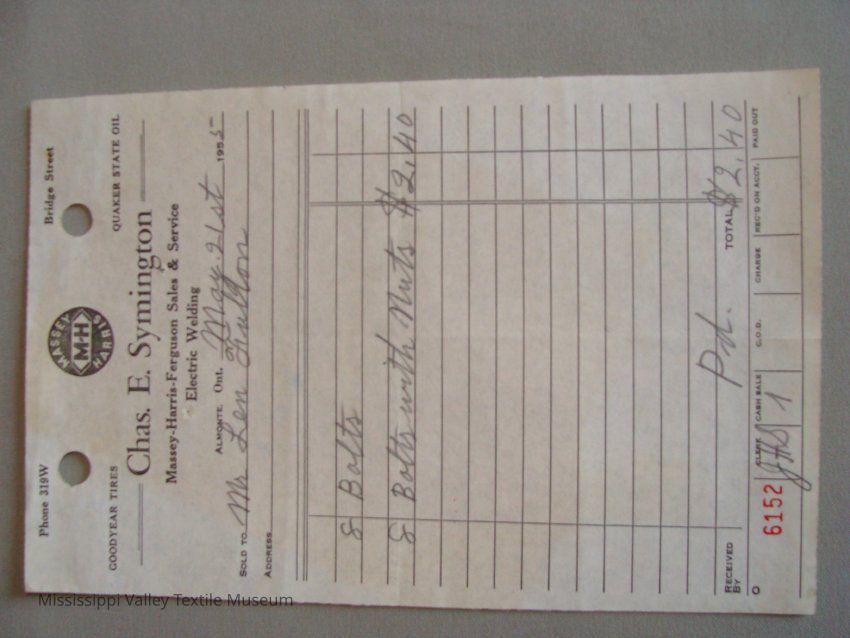 Phone 319W Bridge Street
MASSEY HARRIS
M-H
GOODYEAR TIRES QUAKER STATE OIL
Chas. E. Symington
Massey-Harris-Ferguson Sales & Service
Electric Welding
ALMONTE, Ont. May 21st 1955
SOLD TO Mr Len Fulton
ADDRESS
8 Bolts
8 Bolts with Nuts $2.40
Pd.
RECEIVED BY TOTAL $2.40
O CLERK CASH SALE C.O.D. CHARGE REC'D ON ACCT. PAID OUT
6152 1
Mississippi Valley Textile Museum